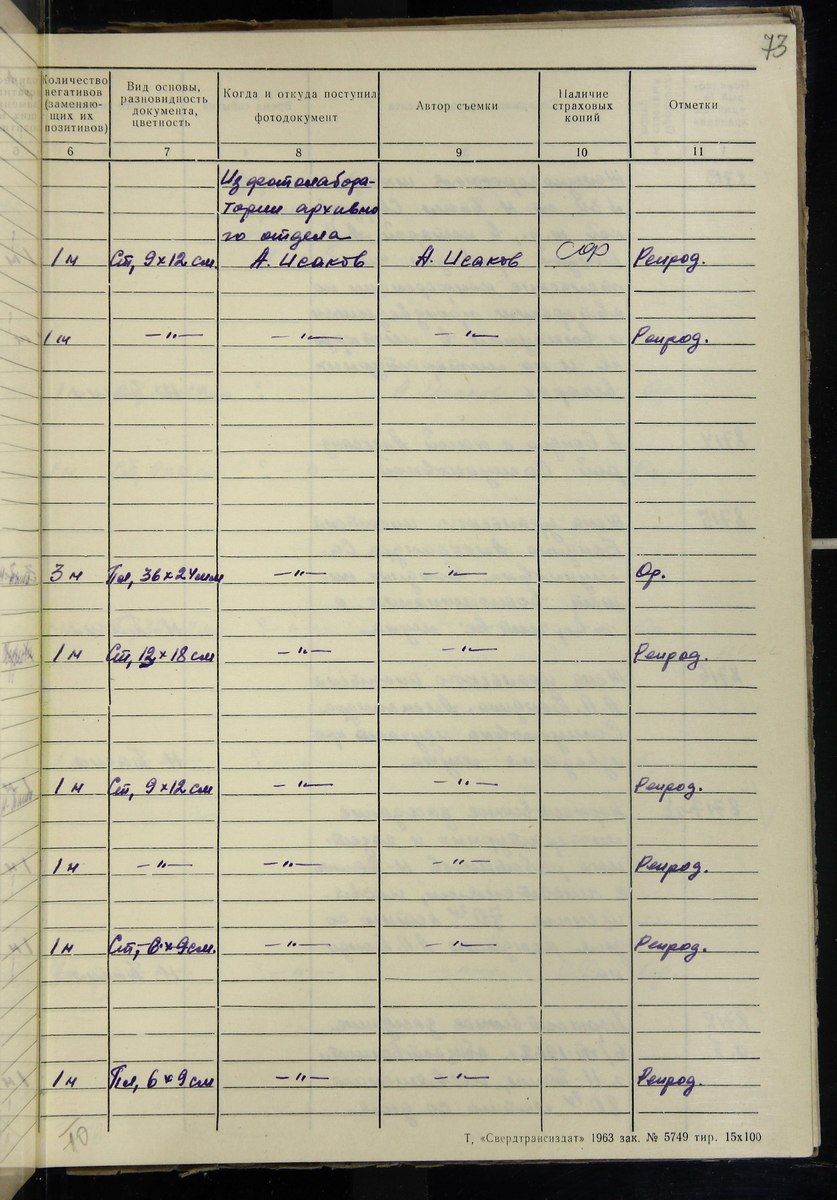 73
Количество негативов (заменяю-щих их позитивов)
Вид основы, разновидность документа, цветность
Когда и откуда поступил фотодокумент
Автор съемки
Наличие страховых копий
Отметки
6 7 8 9 10 11
Из фотолабора-
тории архивно
го отдела
1 н Ст, 9×12 см. А. Исаков А. Исаков СФ Репрод.
1 н —"— —"— —"— Репрод.
3 н Пл, 36×24мм —"— —"— Ор.
1 н Ст, 12×18 см —"— —"— Репрод.
1 н Ст, 9×12 см —"— —"— Репрод.
1 н —"— —"— —"— Репрод.
1 н Ст, 6×9 см. —"— —"— Репрод.
1 н Пл, 6×9 см —"— —"— Репрод.
10
Т. «Свердтрансиздат» 1963 зак. № 5749 тир. 15х100